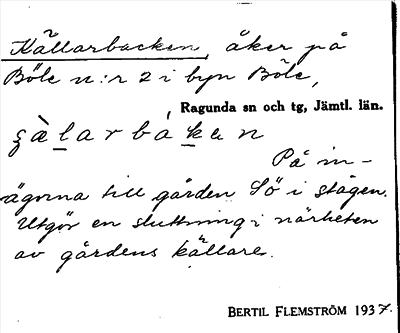 Källarbacken, åker på
Böle n:r 2 i byn Böle,
Ragunda sn och tg, Jämtl. län.
ʂàlarbákɐn
På in-
ägorna till gården Sö i stägen.
Utgör en sluttning i närheten
av gårdens källare.
BERTIL FLEMSTRÖM 1937.